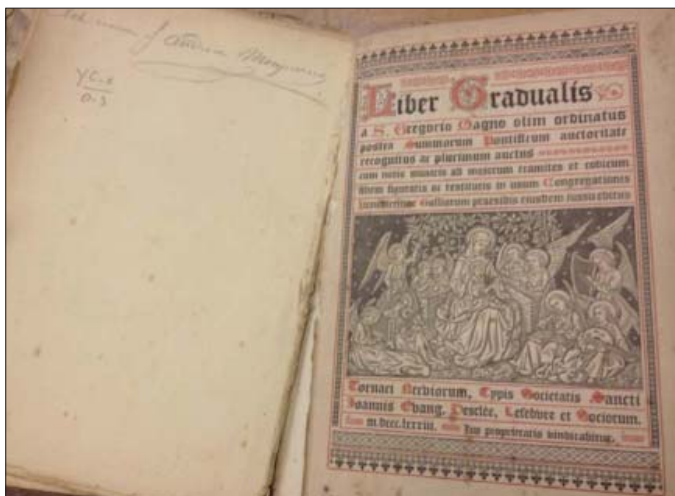 YC-2
Liber Gradualis
a S. Gregorio Magno olim ordinatus
postea Summorum Pontificum auctoritate
recognitus ac plurimum auctus
cum notis musicis ad majorum tramites et codicum
fidem figuratis ac restitutis in usum Congregationis
Benedictinæ Galliarum præsidis ejusdem jussu editus
Tornaci Nerviorum, Typis Societatis Sancti
Joannis Evang. Desclée, Lefebvre et Sociorum.
Jus proprietatis vindicabitur.